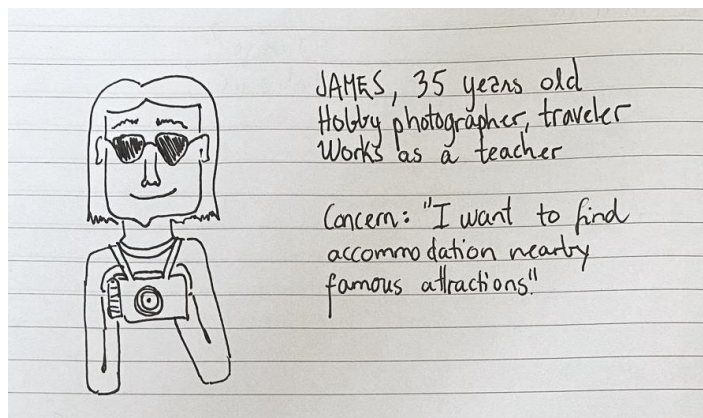 JAMES, 35 years old
Hobby photographer, traveler
Works as a teacher
Concern: "I want to find
accommodation nearby
famous attractions"